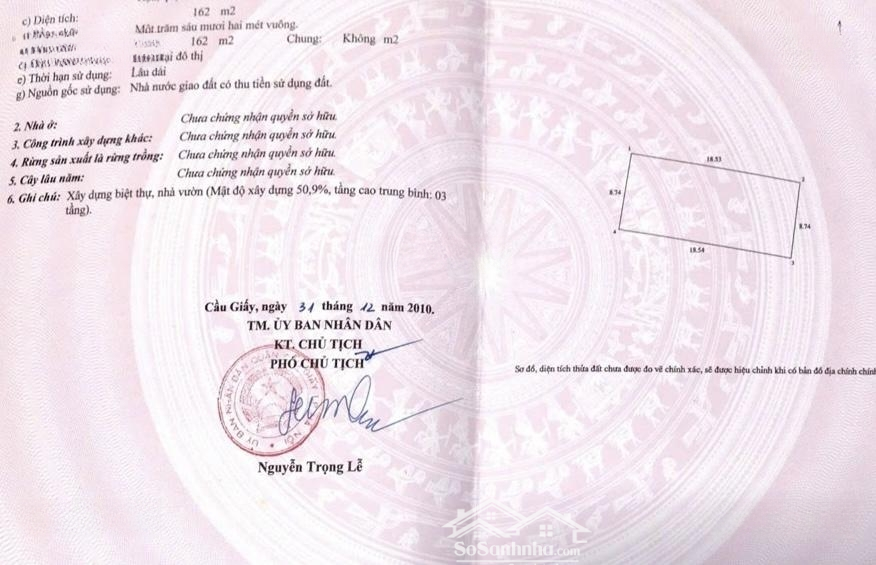 c) Diện tích: 162 m2
Một trăm sáu mươi hai mét vuông.
162 m2 Chung: Không m2
tại đô thị
e) Thời hạn sử dụng: Lâu dài
g) Nguồn gốc sử dụng: Nhà nước giao đất có thu tiền sử dụng đất.
2. Nhà ở: Chưa chứng nhận quyền sở hữu.
3. Công trình xây dựng khác: Chưa chứng nhận quyền sở hữu.
4. Rừng sản xuất là rừng trồng: Chưa chứng nhận quyền sở hữu.
5. Cây lâu năm: Chưa chứng nhận quyền sở hữu.
6. Ghi chú: Xây dựng biệt thự, nhà vườn (Mật độ xây dựng 50,9%, tầng cao trung bình: 03
tầng).
Cầu Giấy, ngày 31 tháng 12 năm 2010.
TM. ỦY BAN NHÂN DÂN
KT. CHỦ TỊCH
PHÓ CHỦ TỊCH
Nguyễn Trọng Lễ
1
18.53
2
8.74
8.74
4
18.54
3
Sơ đồ, diện tích thửa đất chưa được đo vẽ chính xác, sẽ được hiệu chỉnh khi có bản đồ địa chính chính
SoSanhnha.com